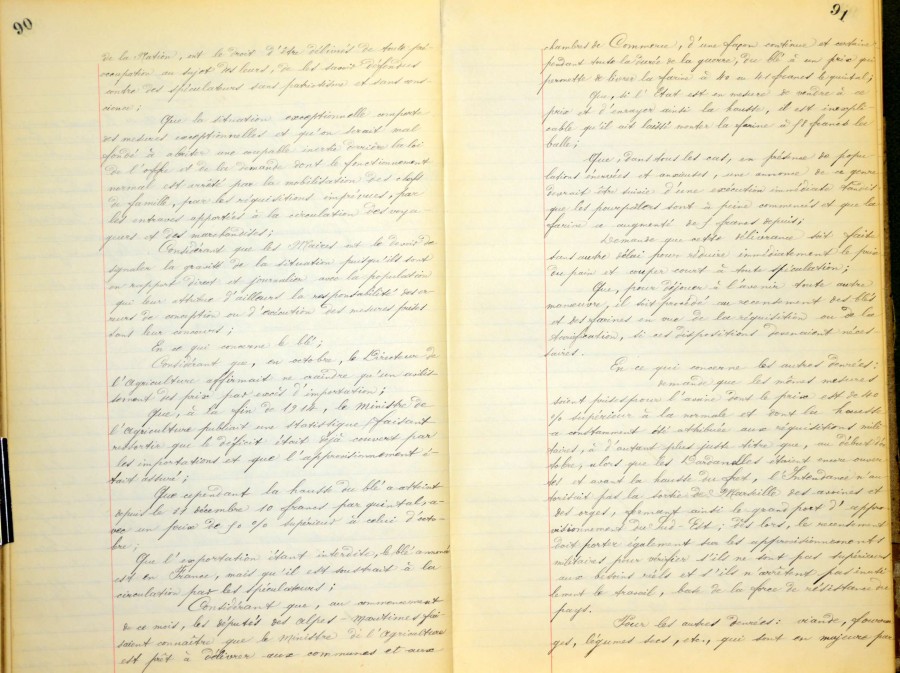 90
de la Nation, ont le droit d'être délivrés de toute pré-
occupation au sujet des leurs, de les savoir défendus
contre des spéculateurs sans patriotisme et sans cons-
cience;
Que la situation exceptionnelle comporte
des mesures exceptionnelles et qu'on serait mal
fondé à abriter une coupable inertie derrière la loi
de l'offre et de la demande dont le fonctionnement
normal est arrêté par la mobilisation des chefs
de famille, par les réquisitions imprévues, par
les entraves apportées à la circulation des voya-
geurs et des marchandises;
Considérant que les Maires ont le devoir de
signaler la gravité de la situation puisqu'ils sont
en rapport direct et journalier avec la population
qui leur attribue d'ailleurs la responsabilité des er-
reurs de conception ou d'exécution des mesures prises
sans leur concours;
En ce qui concerne le blé;
Considérant que, en octobre, le Directeur de
l'Agriculture affirmait ne craindre qu'un avilis-
sement des prix par excès d'importation;
Que, à la fin de 1914, le Ministre de
l'Agriculture publiait une statistique faisant
ressortir que le déficit était déjà couvert par
les importations et que l'approvisionnement é-
tait assuré;
Que cependant la hausse du blé a atteint
depuis le 31 décembre 10 francs par quintal, a-
vec un prix de 50 % supérieur à celui d'octo-
bre;
Que l'exportation étant interdite, le blé
est en France, mais qu'il est soustrait à la
circulation par les spéculateurs;
Considérant que, au commencement
de ce mois, les députés des Alpes-Maritimes fai-
saient connaître que le Ministre de l'Agriculture
est prêt à délivrer aux communes et aux
91
chambres de Commerce, d'une façon continue et certaine
pendant toute la durée de la guerre, du blé à un prix qui
permette de livrer la farine à 40 ou 42 francs le quintal;
Que, si l'Etat est en mesure de vendre à ce
prix et d'enrayer ainsi la hausse, il est inexpli-
cable qu'il ait laissé monter la farine à 51 francs la
balle;
Que, dans tous les cas, en présence de popu-
lations énervées et anxieuses, une annonce de ce genre
devrait être suivie d'une exécution immédiate tandis
que les pourparlers sont à peine commencés et que la
farine a augmenté de 5 francs depuis;
Demande que cette délivrance soit faite
sans autre délai pour réduire immédiatement le prix
du pain et couper court à toute spéculation;
Que, pour déjouer à l'avenir toute autre
manœuvre, il soit procédé au recensement des blés
et des farines en vue de la réquisition ou de la
tarification, si ces dispositions devenaient néces-
saires.
En ce qui concerne les autres denrées:
demande que les mêmes mesures
soient prises pour l'avoine dont le prix est de 40
% supérieur à la normale et dont la hausse
a constamment été attribuée aux réquisitions mili-
taires, à d'autant plus juste titre que, au début d'oc-
tobre, alors que les Dardanelles étaient encore ouver-
tes et avant la hausse du fret, l'Intendance n'au-
torisait pas la sortie de Marseille des avoines et
des orges, fermant ainsi le grand port d'appro-
visionnement du Sud-Est; dès lors, le recensement
doit porter également sur les approvisionnements
militaires pour vérifier s'ils ne sont pas supérieurs
aux besoins réels et s'ils n'arrêtent pas inuti-
lement le travail, base de la force de résistance du
pays.
Pour les autres denrées: viande, fourra-
ges, légumes secs, etc, qui sont en majeure par-